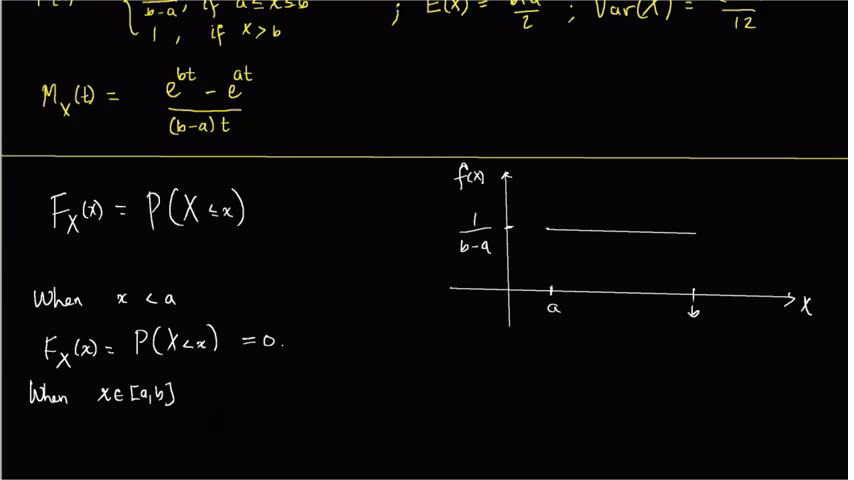 b-a , if a ≤ x ≤ b ; E(X) = 2 ; Var(X) = 12
1 , if x > b
M_X(t) = e^{bt} - e^{at} / (b-a) t
F_X(x) = P(X ≤ x)
When x < a
F_X(x) = P(X < x) = 0.
When x ∈ [a,b]
f(x)
1
b-a
a
b
X